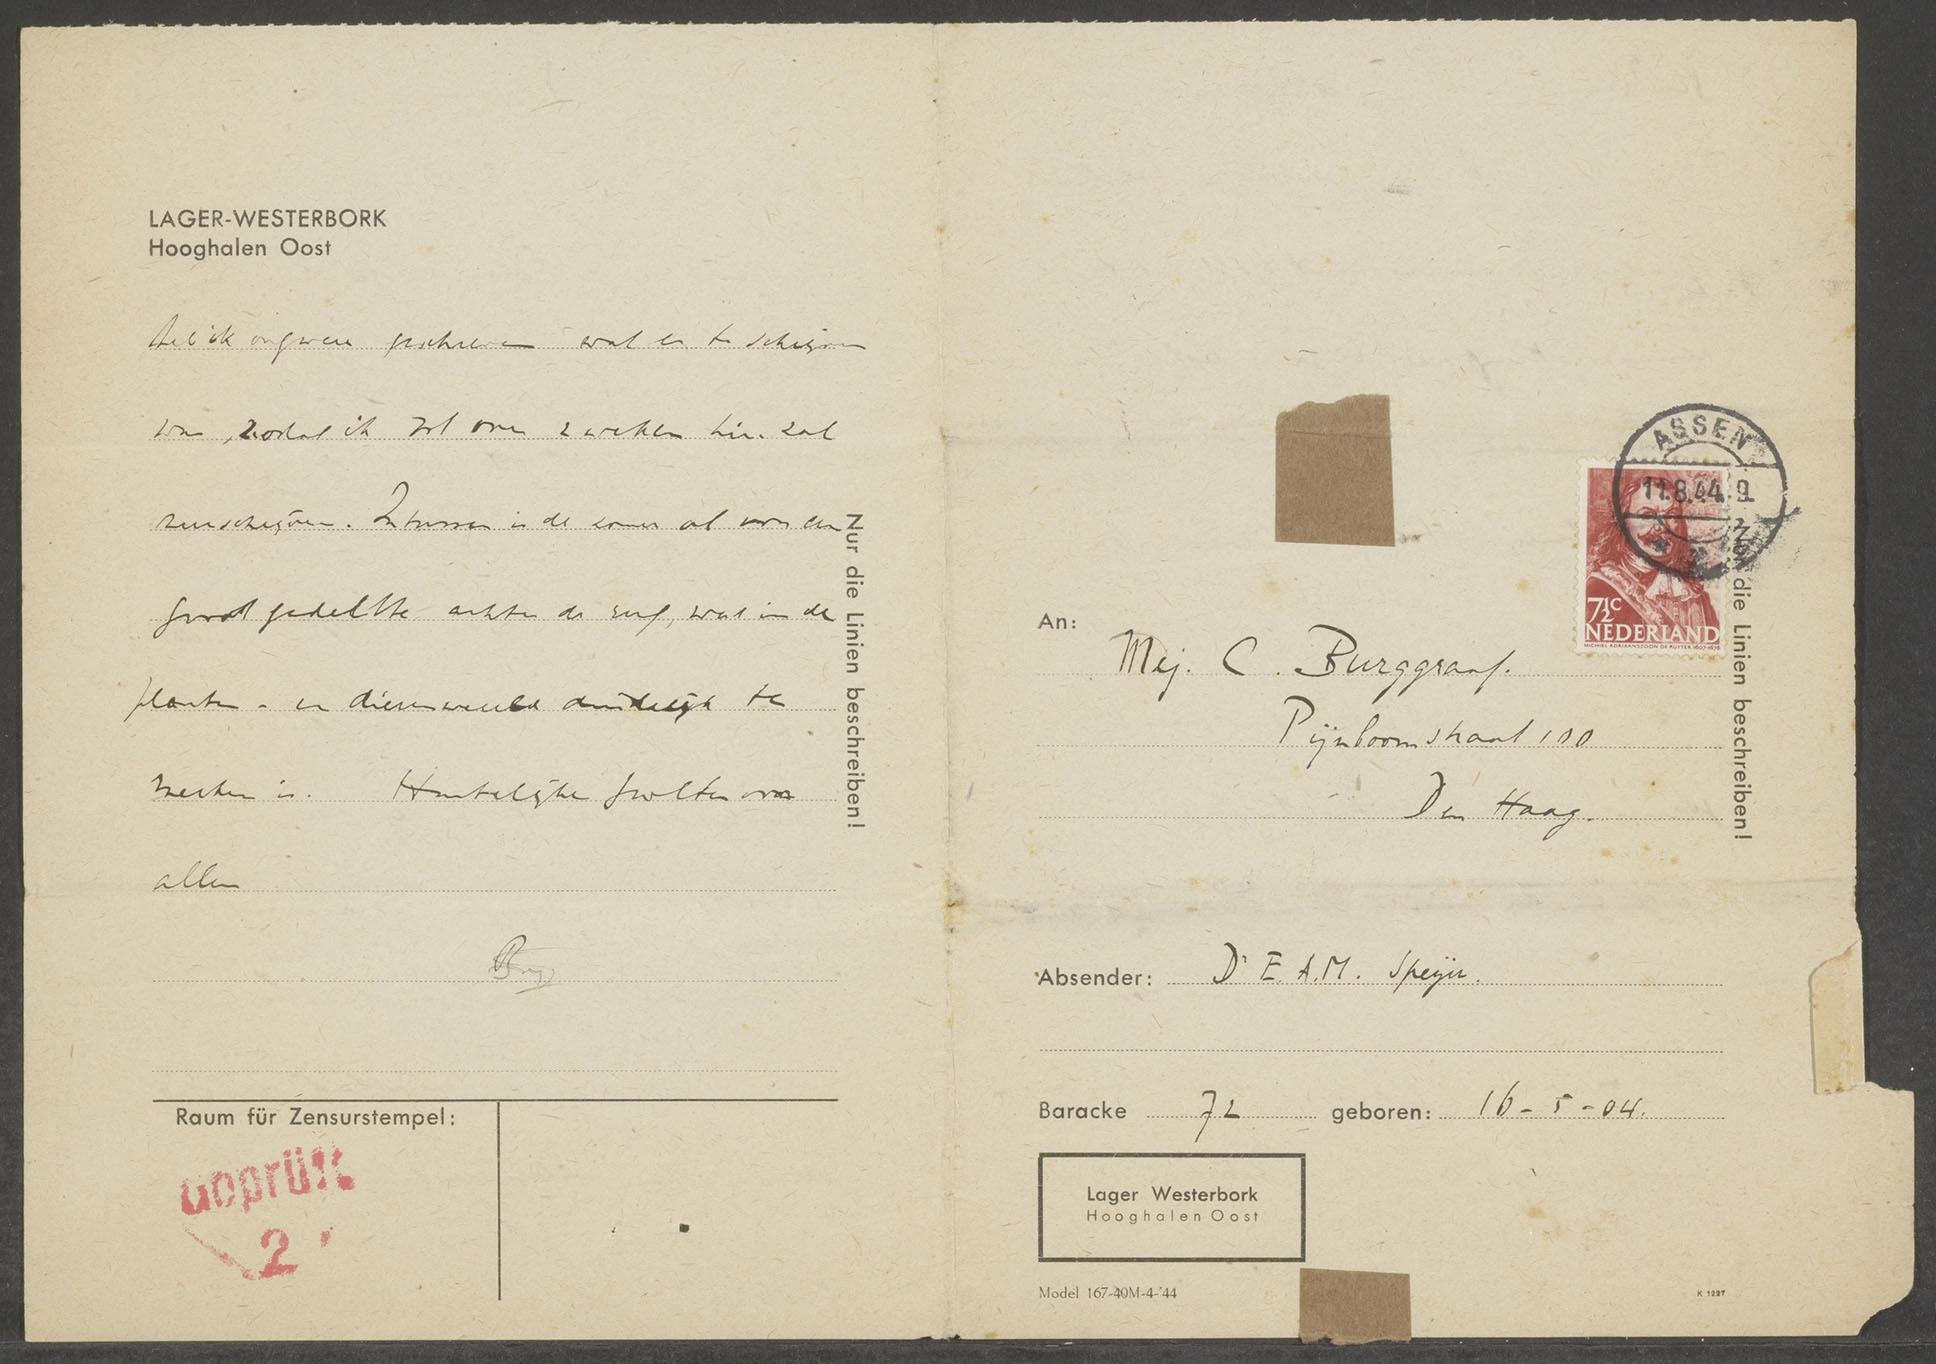 LAGER-WESTERBORK
Hooghalen Oost
Heb ik ongeveer geschreven wat er te schrijven
was, zodat ik tot over 2 weken hier zal
neerschrijven. Intussen is de zomer al voor een
groot gedeelte achter de rug, wat in de
planten- en dierenwereld duidelijk te
merken is. Hartelijke groeten aan
allen
Nur die Linien beschreiben!
Raum für Zensurstempel:
Geprüft
2
ASSEN
11.8.44.9
7½c
NEDERLAND
MICHIEL ADRIAANSZOON DE RUYTER 1607-1676
An:
Mej. C. Burggraaf.
Pijnboomstraat 100
Den Haag.
die Linien beschreiben!
Absender: Dr E.A.M. Speijer.
Baracke 72 geboren: 16-5-04.
Lager Westerbork
Hooghalen Oost
Model 167-40M-4-'44
K 1227